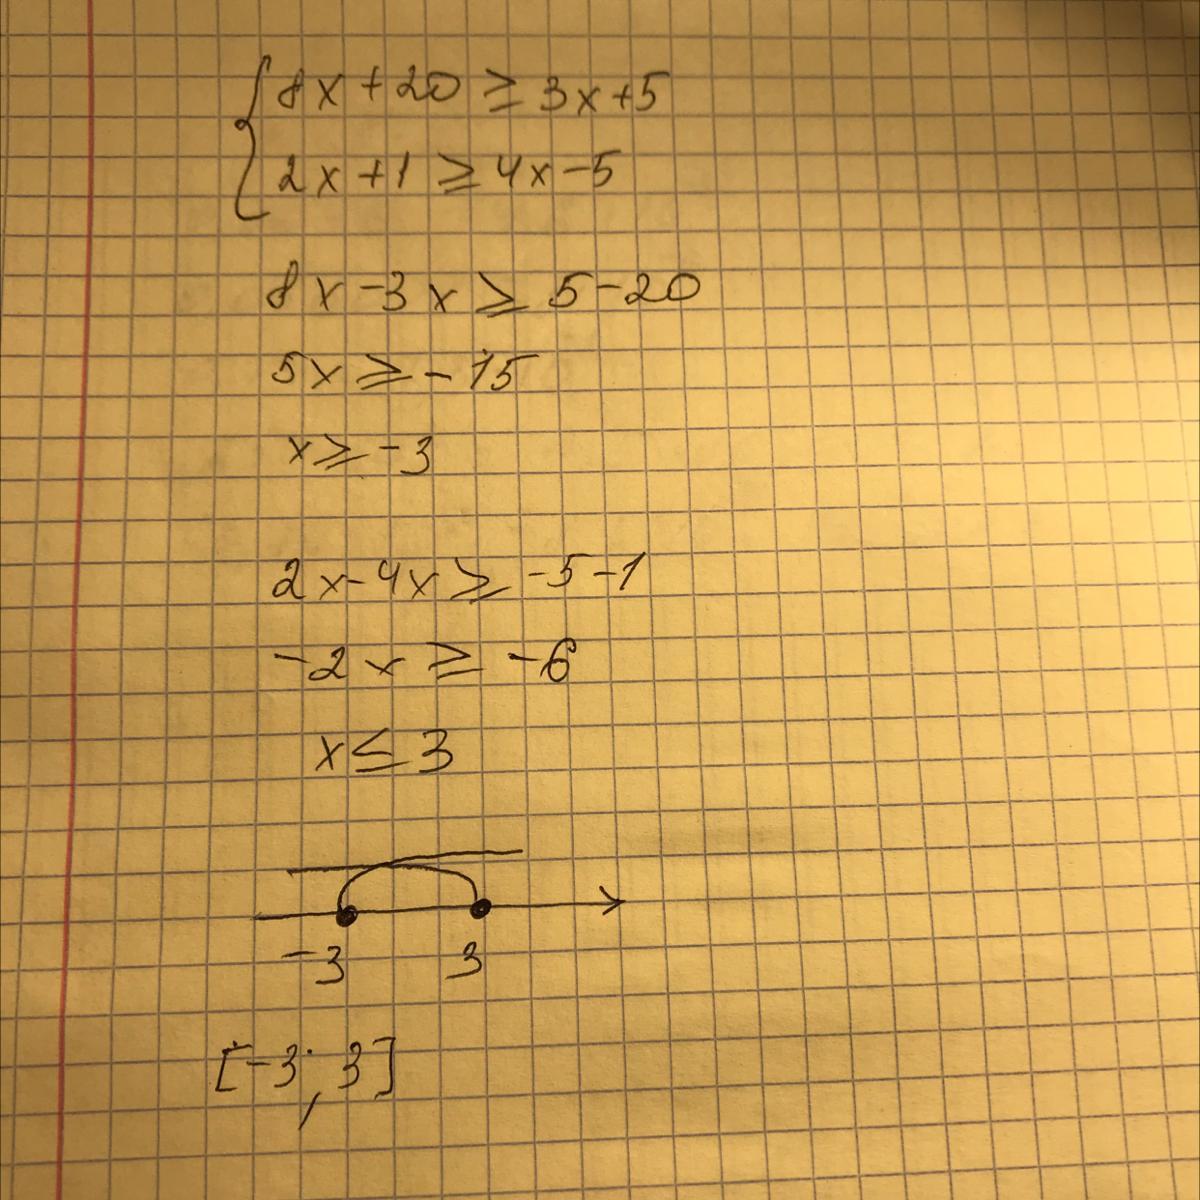 8x+20 ≥ 3x+5
2x+1 ≥ 4x-5
8x-3x ≥ 5-20
5x ≥ -15
x ≥ -3
2x-4x ≥ -5-1
-2x ≥ -6
x ≤ 3
-3 3
[-3; 3]